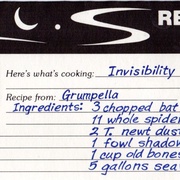 RE
Here's what's cooking: Invisibility
Recipe from: Grumpella
Ingredients: 3 chopped bat
11 whole spider
2 T. newt dus
1 fowl shadow
1 cup old bones
5 gallons sea